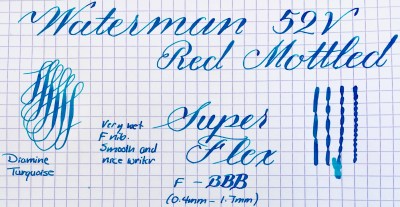 Waterman 52V
Red Mottled
Diamine
Turquoise
Very wet
F nib.
Smooth and
nice writer
Super
Flex
F - BBB
(0.4mm - 1.7mm)